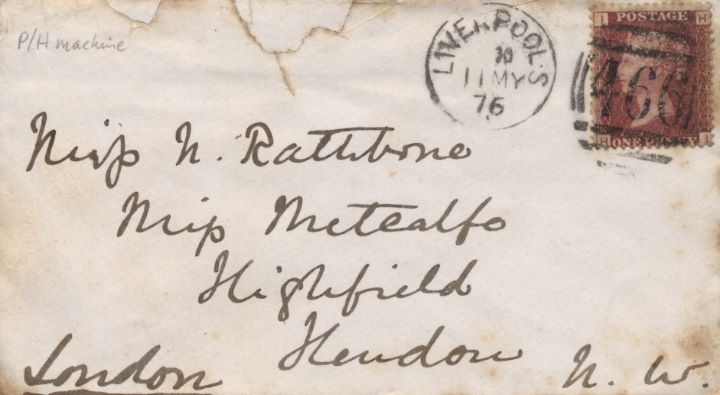 P/H machine
LIVERPOOL.S
30
11 MY
76
I POSTAGE H
466
H ONE PENNY I
Miss N. Rathbone
Miss Metcalfe
Highfield
Hendon
London N. W.